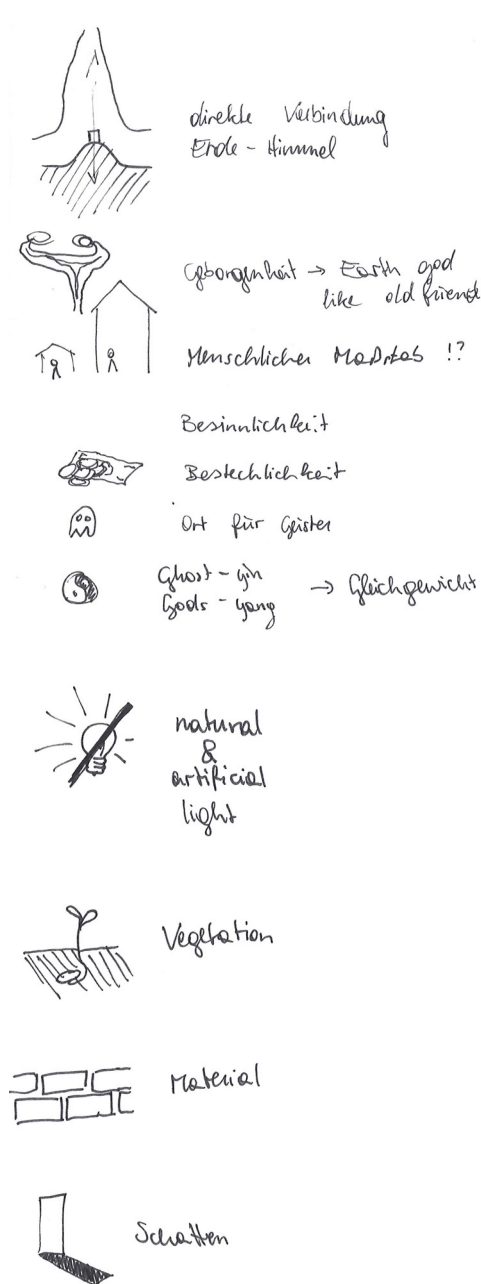 direkte Verbindung
Erde - Himmel
Geborgenheit → Earth god
like old friend
Menschlicher Maßstab !?
Besinnlichkeit
Bestechlichkeit
Ort für Geister
Ghost - yin
Gods - yang → Gleichgewicht
natural
&
artificial
light
Vegetation
Material
Schatten